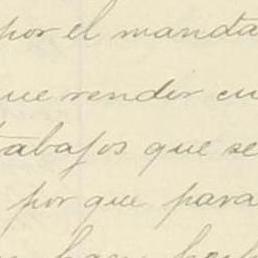 por el manda
que rendir cu
trabajos que se
por que para
han hech